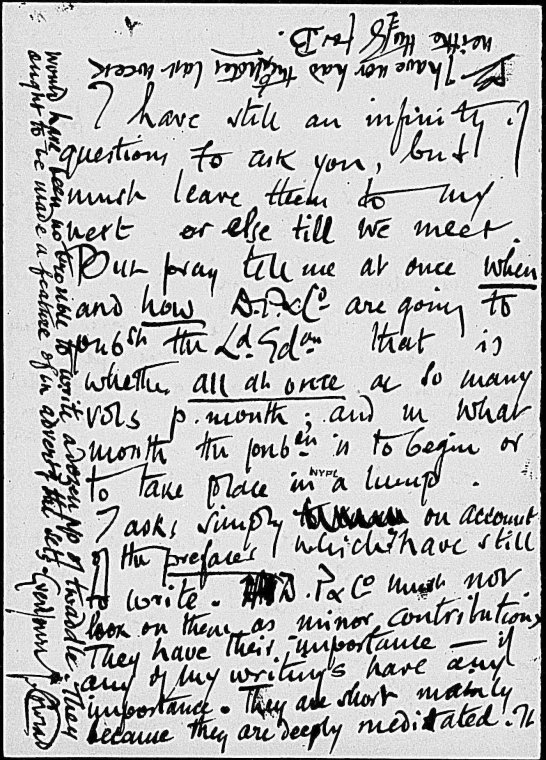 I have still an infinity of
questions to ask you, but I
must leave them to my
next or else till we meet.
But pray tell me at once when
and how D.P.&Co are going to
pubsh the Ld. Edon that is
whether all at once or so many
vols p. month; and in what
month the pubon is to begin or
to take place in a lump.
NYPL
I ask simply on account
of the prefaces which I have still
to write. D.P&Co must not
look on them as minor contributions
They have their importance — if
any of my writings have any
importance. They are short mainly
because they are deeply meditated. It
would have been no trouble to write a dozen pp of twaddle. They
ought to be made a feature of in advert of the set. Ever yours J. Conrad
I have not had last week
neither the for